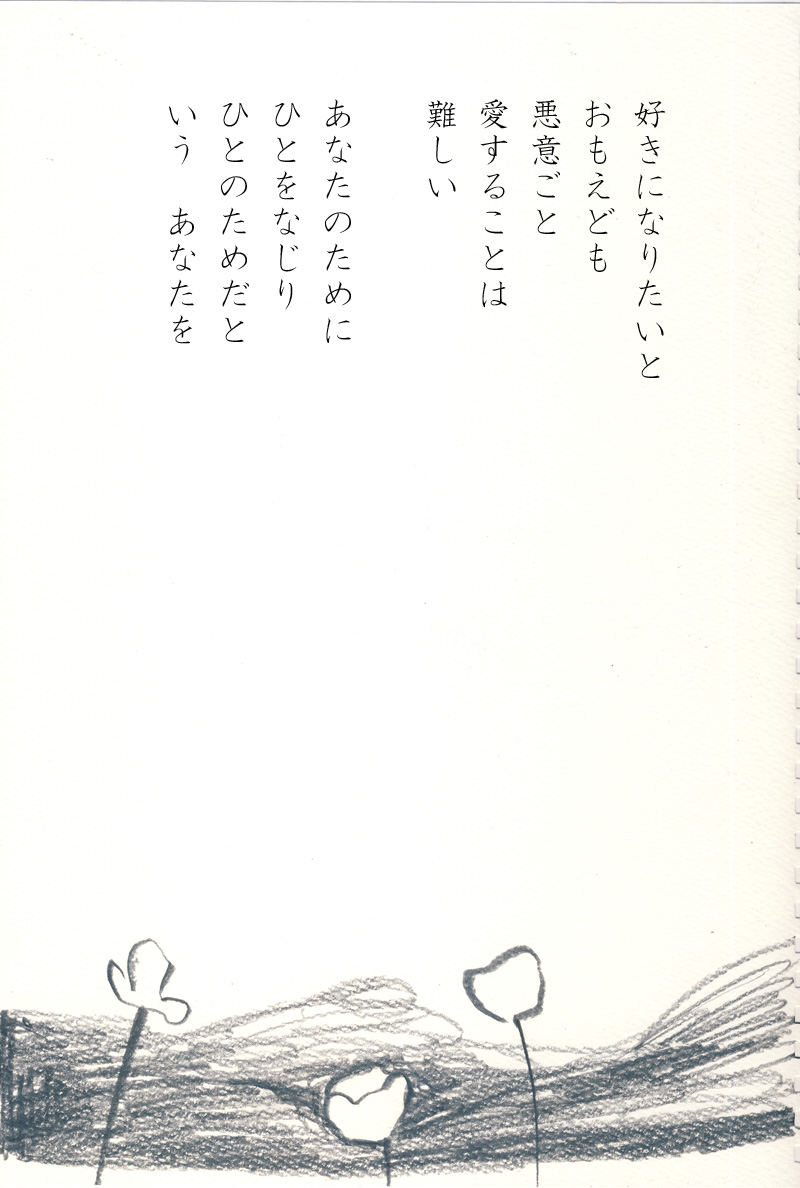 好きになりたいと
おもえども
悪意ごと
愛することは
難しい
あなたのために
ひとをなじり
ひとのためだと
いう　あなたを